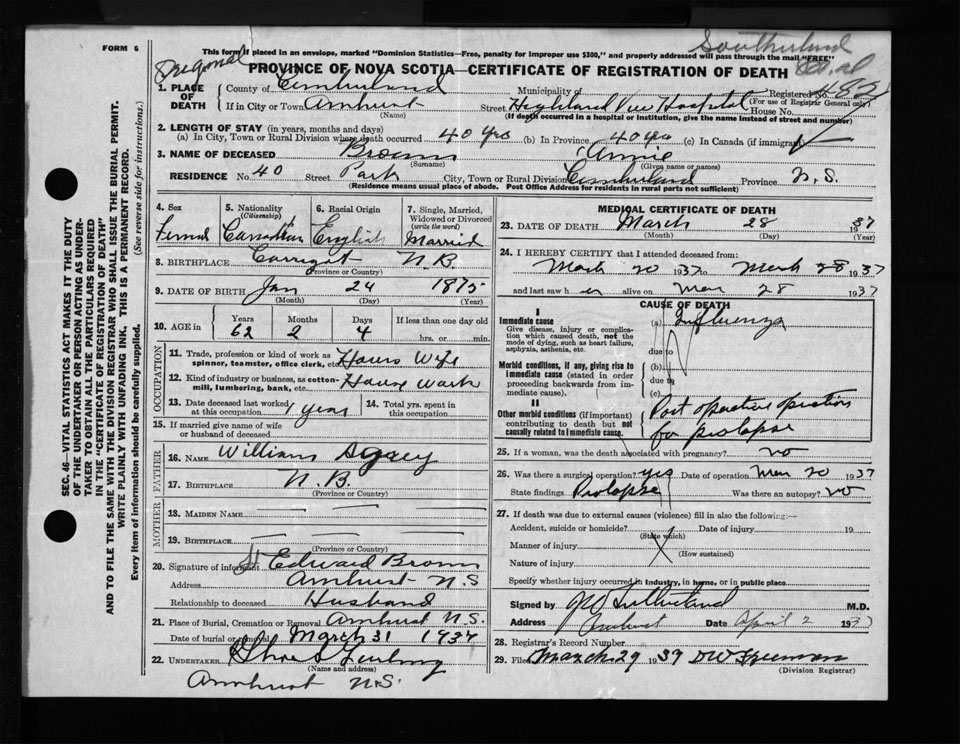 FORM 6
This form if placed in an envelope, marked "Dominion Statistics—Free, penalty for improper use $300," and properly addressed will pass through the mail "FREE"
Southerland
PROVINCE OF NOVA SCOTIA—CERTIFICATE OF REGISTRATION OF DEATH
1. PLACE OF DEATH
County of Cumberland
Municipality of
Registered No. 482
(For use of Registrar General only)
If in City or Town Amherst
(Name)
Street Highland View Hospital House No.
(If death occurred in a hospital or institution, give the name instead of street and number)
2. LENGTH OF STAY (in years, months and days)
(a) In City, Town or Rural Division where death occurred 40 yrs (b) In Province 40 yrs (c) In Canada (if immigrant)
3. NAME OF DECEASED Brown Annie
(Surname) (Given name or names)
RESIDENCE No. 40 Street Park City, Town or Rural Division Cumberland Province N.S.
(Residence means usual place of abode. Post Office Address for residents in rural parts not sufficient)
4. Sex
5. Nationality (Citizenship)
6. Racial Origin
7. Single, Married, Widowed or Divorced (write the word)
Femal Canadian English Married
8. BIRTHPLACE N.B.
(Province or Country)
9. DATE OF BIRTH Jan 24 1875
(Month) (Day) (Year)
10. AGE in Years Months Days If less than one day old
62 2 4 hrs. or min.
OCCUPATION
11. Trade, profession or kind of work as spinner, teamster, office clerk, etc. House Wife
12. Kind of industry or business, as cotton-mill, lumbering, bank, etc. House Work
13. Date deceased last worked at this occupation 1 year
14. Total yrs. spent in this occupation
15. If married give name of wife or husband of deceased
FATHER
16. NAME William
17. BIRTHPLACE N.B.
(Province or Country)
MOTHER
18. MAIDEN NAME
19. BIRTHPLACE
(Province or Country)
20. Signature of informant Edward Brown
Address Amherst N.S
Relationship to deceased Husband
21. Place of Burial, Cremation or Removal Amherst N.S.
Date of burial or removal March 31 1937
22. UNDERTAKER
(Name and address)
Amherst N.S.
MEDICAL CERTIFICATE OF DEATH
23. DATE OF DEATH March 28 1937
(Month) (Day) (Year)
24. I HEREBY CERTIFY that I attended deceased from:
March 20 1937 to March 28 1937
and last saw her alive on Mar 28 1937
CAUSE OF DEATH
I
Immediate cause
Give disease, injury or complication which caused death, not the mode of dying, such as heart failure, asphyxia, asthenia, etc.
(a) Influenza
due to
Morbid conditions, if any, giving rise to immediate cause (stated in order proceeding backwards from immediate cause).
(b)
due to
(c)
II
Other morbid conditions (if important) contributing to death but not causally related to immediate cause.
Post operative
for prolapse
25. If a woman, was the death associated with pregnancy? no
26. Was there a surgical operation? yes Date of operation Mar 20 1937
State findings Prolapse Was there an autopsy? no
27. If death was due to external causes (violence) fill in also the following:-
Accident, suicide or homicide? Date of injury 19
(State which)
Manner of injury
(How sustained)
Nature of injury
Specify whether injury occurred in industry, in home, or in public place
Signed by Sutherland M.D.
Address Amherst Date April 2 1937
28. Registrar's Record Number
29. Filed March 29 1937 DW Freeman
(Division Registrar)
SEC. 46—VITAL STATISTICS ACT MAKES IT THE DUTY OF THE UNDERTAKER OR PERSON ACTING AS UNDERTAKER TO OBTAIN ALL THE PARTICULARS REQUIRED IN THE "CERTIFICATE OF REGISTRATION OF DEATH" AND TO FILE THE SAME WITH THE DIVISION REGISTRAR WHO SHALL ISSUE THE BURIAL PERMIT.
WRITE PLAINLY WITH UNFADING INK. THIS IS A PERMANENT RECORD.
Every item of information should be carefully supplied. (See reverse side for instructions.)